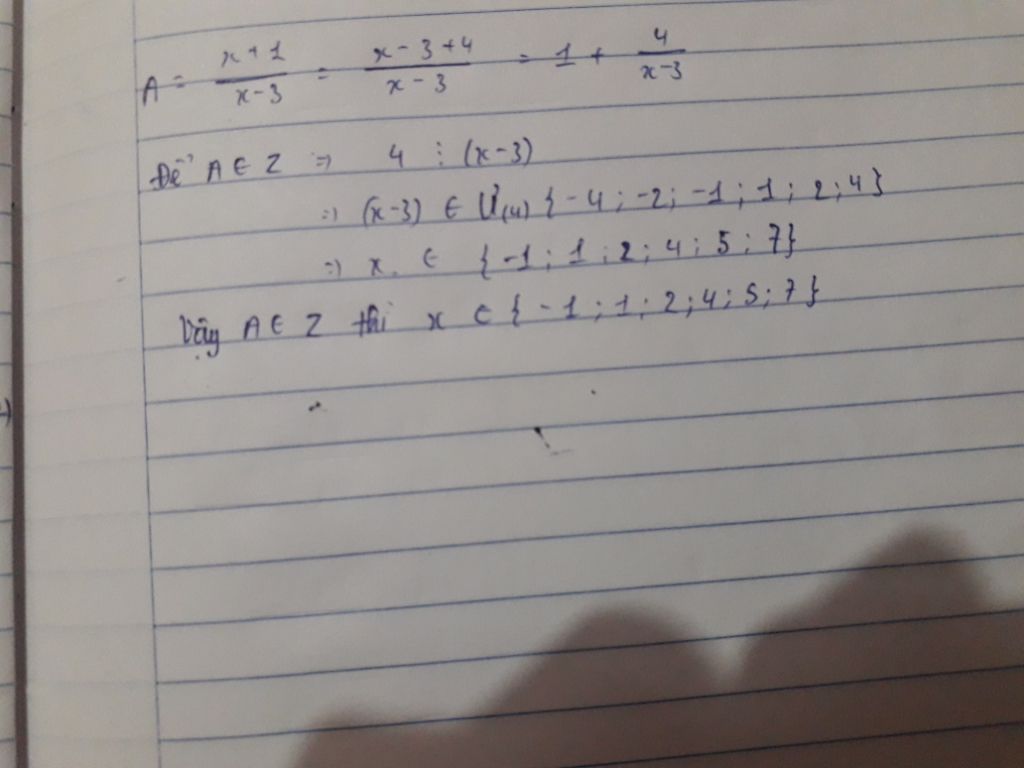 A = \frac{x+1}{x-3} = \frac{x-3+4}{x-3} = 1 + \frac{4}{x-3}
Để A ∈ Z => 4 ⋮ (x-3)
=> (x-3) ∈ Ư(4) {-4; -2; -1; 1; 2; 4}
=> x ∈ {-1; 1; 2; 4; 5; 7}
Vậy A ∈ Z thì x ∈ {-1; 1; 2; 4; 5; 7}